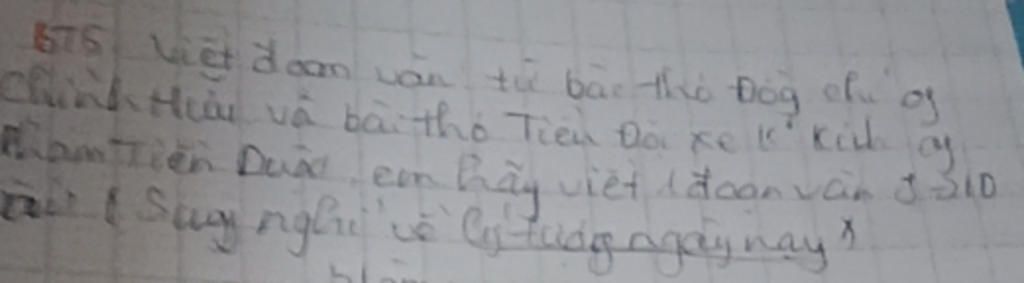 BT5 Viết đoạn văn từ bài thơ Đog chí og
Chính Hữu và bài thơ Tiểu Đội xe k° kính og
Phạm Tiến Duật, em hãy viết 1 đoạn văn
Suy nghĩ về lý tưởng ngày nay